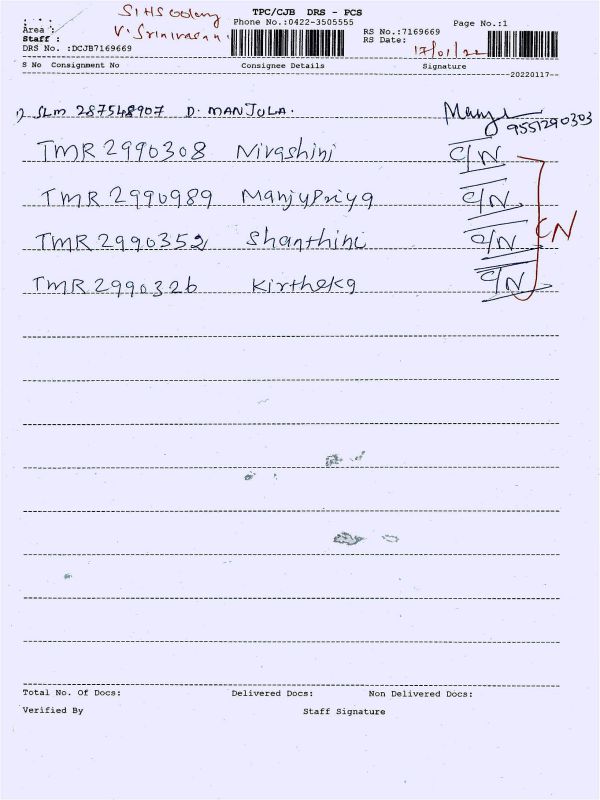 TPC/CJB DRS - PCS
Phone No.:0422-3505555
Page No.:1
Area : SIHS Colony
Staff : V. Srinivasan
RS No.:7169669
RS Date: 17/01/22
DRS No. :DCJB7169669
S No Consignment No Consignee Details Signature
20220117
1) SLM 287548907 D. MANJULA. 9551290303
TMR 2990308 Nirashini C/N
TMR 2990989 Manjupriya C/N
CN
TMR 2990352 Shanthini C/N
TMR 2990326 Kirtheka C/N
Total No. Of Docs: Delivered Docs: Non Delivered Docs:
Verified By Staff Signature